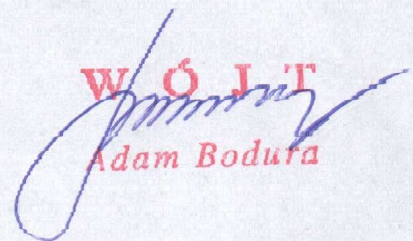 W Ó J T
Adam Bodura